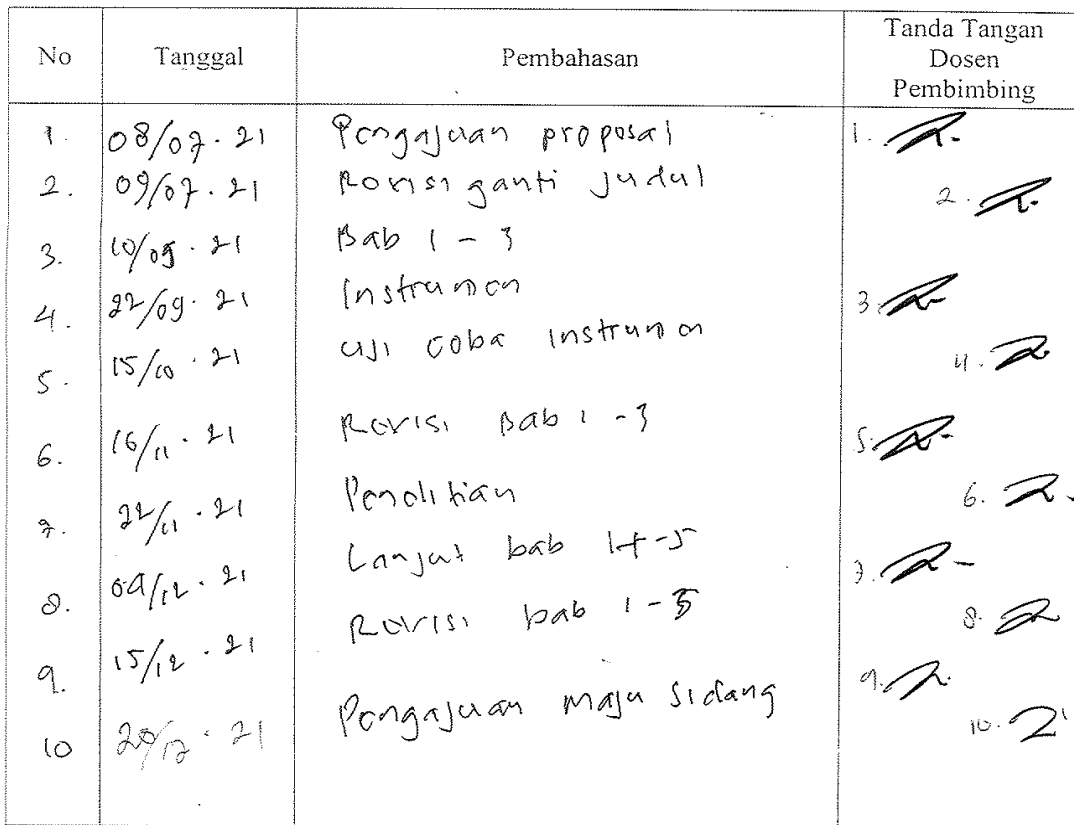 No Tanggal Pembahasan Tanda Tangan
Dosen
Pembimbing
1. 08/07.21 Pengajuan proposal 1.
2. 09/07.21 Revisi ganti judul 2.
3. 10/09.21 Bab 1-3
4. 22/09.21 Instrumen 3.
5. 15/10.21 Uji coba instrumen 4.
6. 16/11.21 Revisi Bab 1-3 5.
7. 22/11.21 Penelitian 6.
8. 09/12.21 Lanjut bab 4-5 7.
9. 15/12.21 Revisi bab 1-5 8.
10 20/12.21 Pengajuan maju sidang 9.
10.